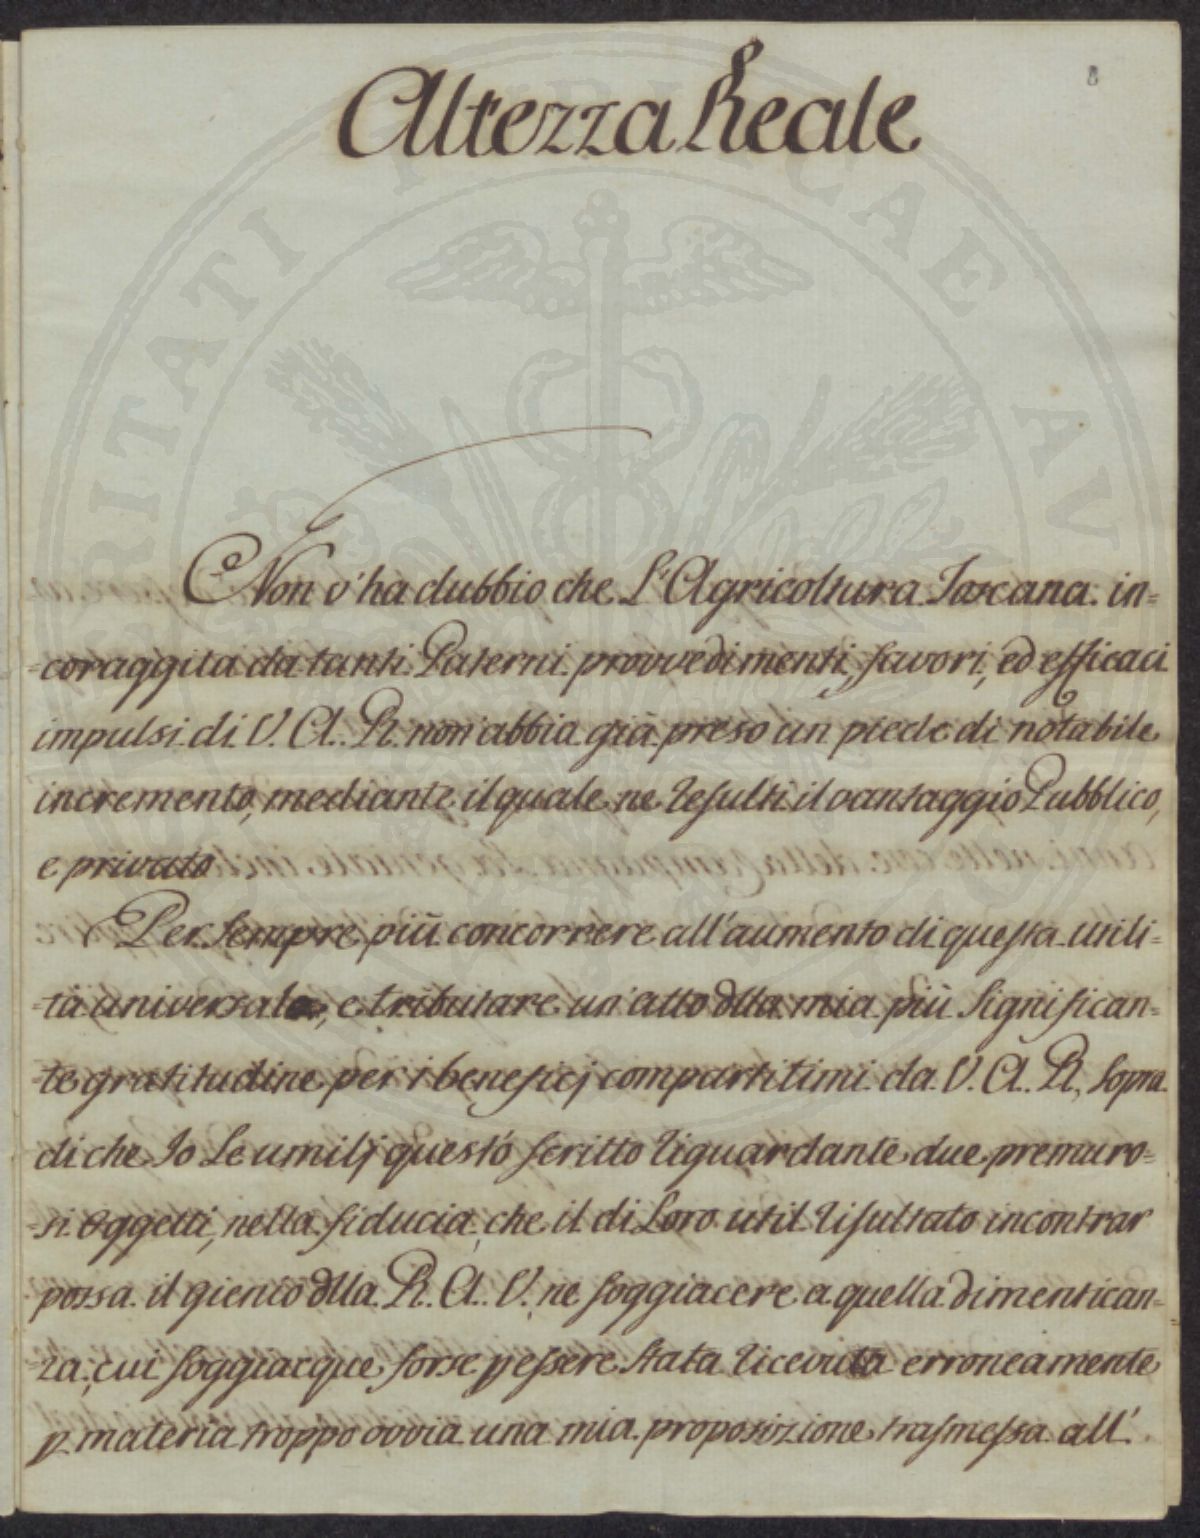 8
Altezza Reale
Non v'ha dubbio che L'Agricoltura Toscana in=
=coraggita da tanti Paterni provvedimenti, favori, ed efficaci
impulsi di V. A. R. non abbia già preso un piede di notabile
incremento, mediante il quale ne resulti il vantaggio Pubblico,
e privato
Per sempre più concorrere all'aumento di questa utili=
=tà universale, e tributare un'atto dlla mia più significan=
=te gratitudine per i beneficj compartitimi da V. A. R., sopra
di che Io Le umilj questo scritto riguardante due premuro=
=si oggetti, nella fiducia, che il di Loro util risultato incontrar
possa il giento dlla R. A. V. ne soggiacere a quella dimentican=
=za, cui soggiacque forse p essere stata ricevuta erroneamente
p materia troppo ovvia una mia proposizione trasmessa all'
VERITATI PUBLICAE